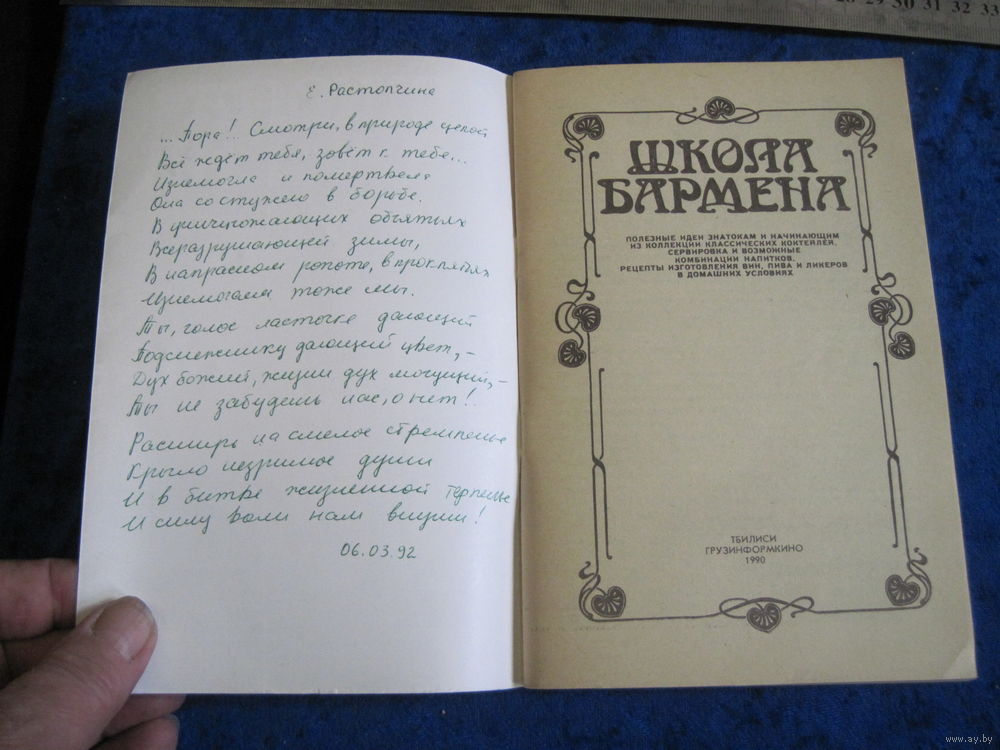 28 29 30 31 32 33
Е. Растопчина
... Пора!.. Смотри, в природе целой
Всё ждёт тебя, зовёт к тебе...
Изнемогла и помертвела
Она со стужею в борьбе.
В уничтожающих объятьях
Всеразрушающей зимы,
В напрасном ропоте, в проклятьях
Изнемогаем тоже мы.
Ты, голос ласточке дающий
Подснежнику дающий цвет, –
Дух божий, жизни дух могущий, –
Ты не забудешь нас, о нет!
Расширь на смелое стремленье
Крыло незримое души
И в битве жизненной терпенье
И силу воли нам внуши!
06.03.92
ШКОЛА
БАРМЕНА
ПОЛЕЗНЫЕ ИДЕИ ЗНАТОКАМ И НАЧИНАЮЩИМ
ИЗ КОЛЛЕКЦИИ КЛАССИЧЕСКИХ КОКТЕЙЛЕЙ.
СЕРВИРОВКА И ВОЗМОЖНЫЕ
КОМБИНАЦИИ НАПИТКОВ.
РЕЦЕПТЫ ИЗГОТОВЛЕНИЯ ВИН, ПИВА И ЛИКЕРОВ
В ДОМАШНИХ УСЛОВИЯХ
ТБИЛИСИ
ГРУЗИНФОРМКИНО
1990
www.ay.by